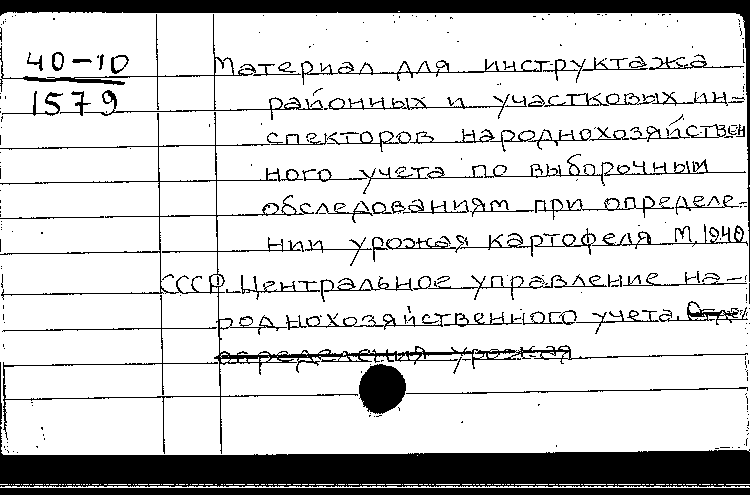 40-10
1579
Материал для инструктажа
районных и участковых ин-
спекторов народнохозяйствен
ного учета по выборочным
обследованиям при определе-
нии урожая картофеля М, 1940
СССР. Центральное управление на-
роднохозяйственного учета. Отдел
определения урожая